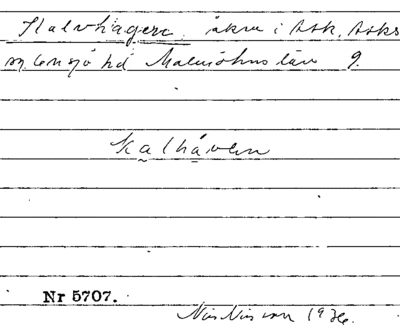 Halvhagen, åkra i Ask, Asks
sn, Onsjö hd Malmöhus län 9.
kalhåven
Nr 5707.
Nils Nilsson 1936.